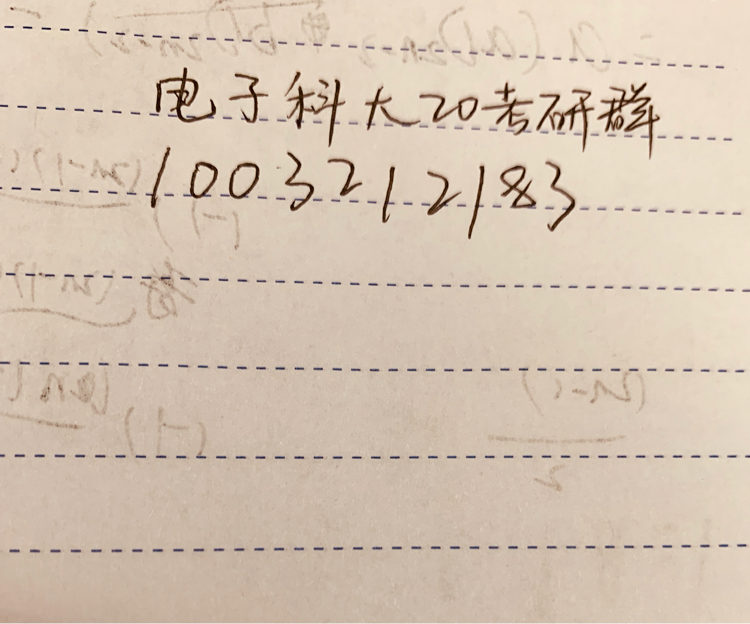 电子科大20考研群
1003212183